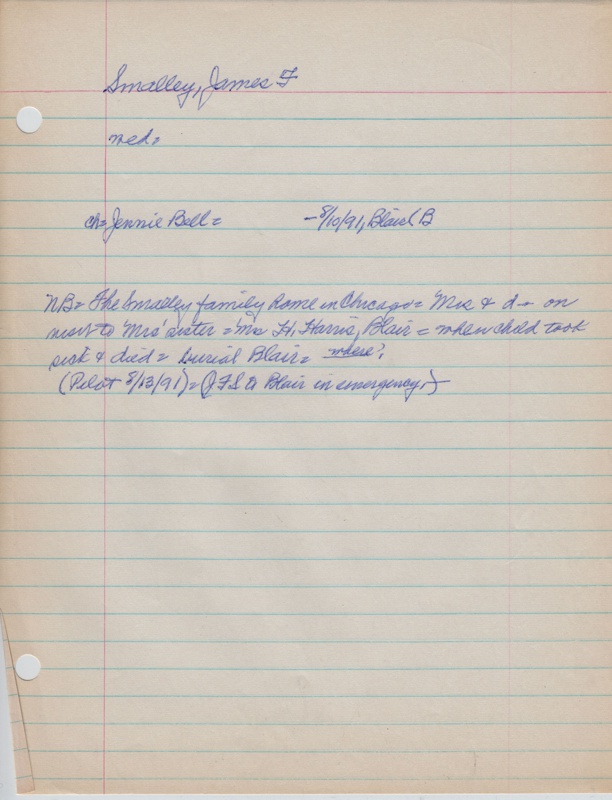 Smalley, James F
med=
ch= Jennie Bell = - 8/10/91, Blair B
NB= The Smalley family home in Chicago = Mrs & d- on
visit to Mrs' sister = Mrs H. Harris, Blair = when child took
sick & died = burial Blair = where?
(Pilot 8/13/91) = (JFS to Blair in emergency.)